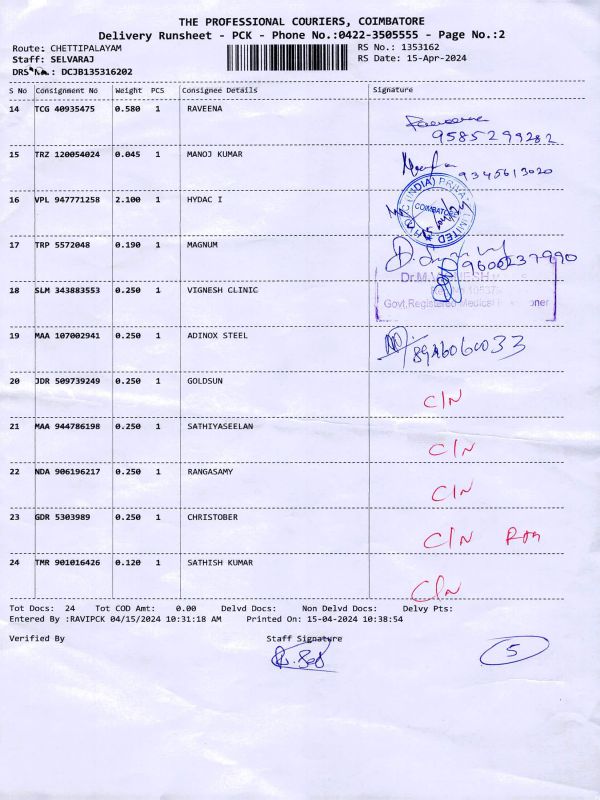 THE PROFESSIONAL COURIERS, COIMBATORE
Delivery Runsheet - PCK - Phone No.:0422-3505555 - Page No.:2
Route: CHETTIPALAYAM RS No.: 1353162
Staff: SELVARAJ RS Date: 15-Apr-2024
DRS No.: DCJB135316202
S No Consignment No Weight PCS Consignee Details Signature
14 TCG 40935475 0.580 1 RAVEENA
Raveena
9585299282
15 TRZ 120054024 0.045 1 MANOJ KUMAR
9345613020
16 VPL 947771258 2.100 1 HYDAC I
(INDIA) PRIVATE LIMITED
COIMBATORE
17 TRP 5572048 0.190 1 MAGNUM
9600237990
18 SLM 343883553 0.250 1 VIGNESH CLINIC
Govt.Registered Medical
19 MAA 107002941 0.250 1 ADINOX STEEL
20 JDR 509739249 0.250 1 GOLDSUN
C/N
21 MAA 944786198 0.250 1 SATHIYASEELAN
C/N
22 NDA 906196217 0.250 1 RANGASAMY
C/N
23 GDR 5303989 0.250 1 CHRISTOBER
C/N
24 TMR 901016426 0.120 1 SATHISH KUMAR
C/N
Tot Docs: 24 Tot COD Amt: 0.00 Delvd Docs: Non Delvd Docs: Delvy Pts:
Entered By :RAVIPCK 04/15/2024 10:31:18 AM Printed On: 15-04-2024 10:38:54
Verified By Staff Signature
5